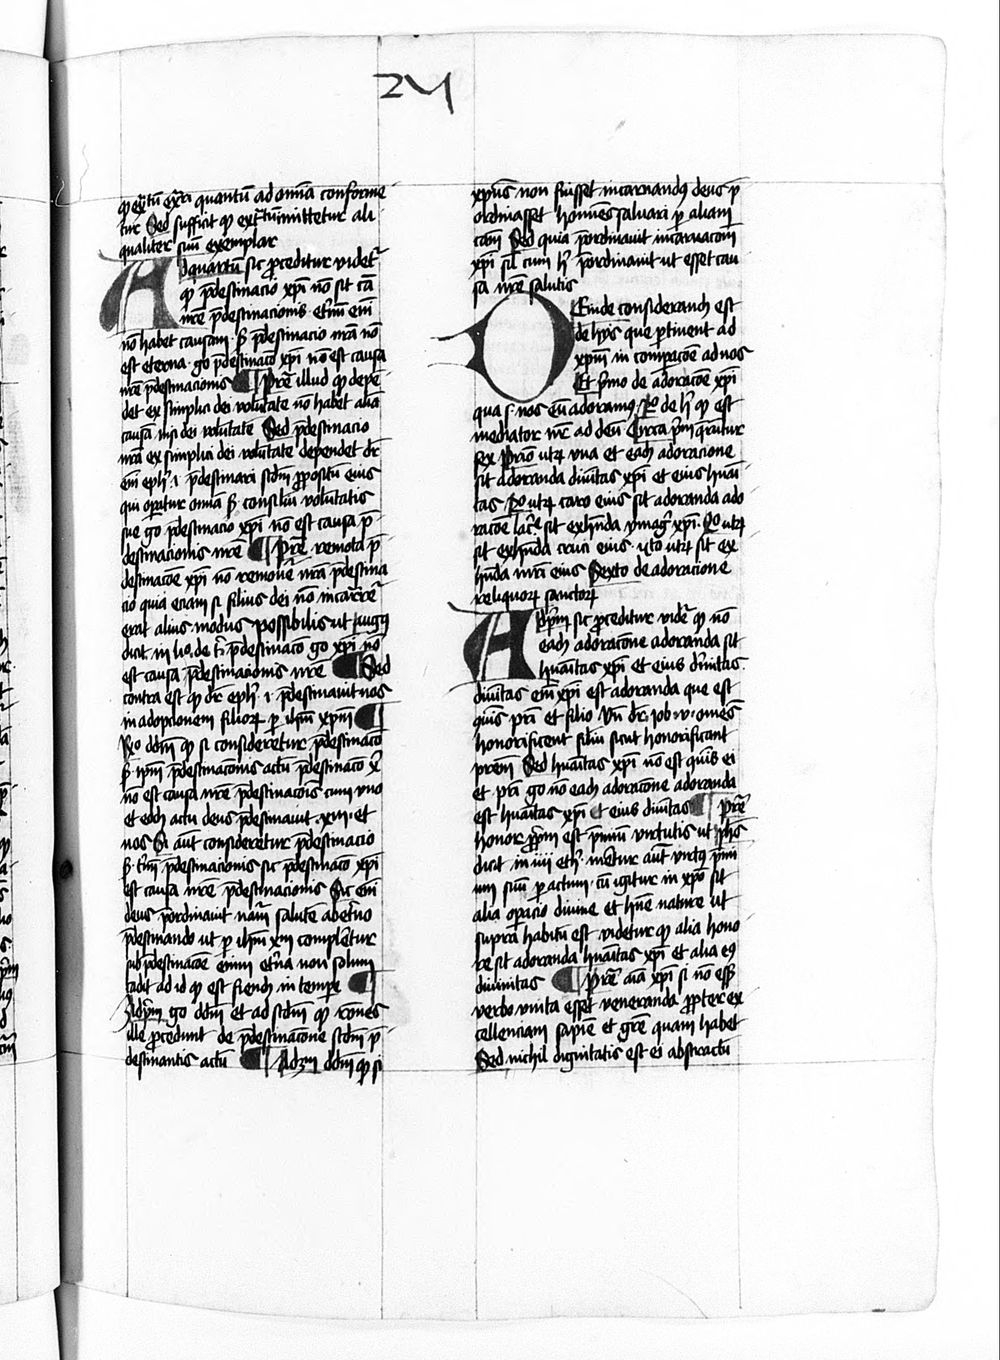 24
qꝫ exẽplũ exẽpͬi quantũ ad omnia conforme
tur Sed sufficit qꝫ exẽplũ imittetur ali
qualiter suũ exemplar
Ad quartũ sic ꝓceditur videtͬ
qꝫ p̃destinacio xp̃i nõ sit cã
nr̃e p̃destinacionis. et̃nũ eñi
nõ habet causam. sꝫ p̃destinacio nr̃a nõ
est eterna. go p̃destinacõ xp̃i nõ est causa
nr̃e p̃destinacionis ¶ Pret̃ illud qꝫ depẽ
det ex simplici dei volũtate nõ habet aliã
causã nisi dei volũtatẽ Sed p̃destinacio
nr̃a ex simplici dei volũtate dependet dr̃
eñi eph̃ .i. p̃destinati scd̃m ꝓpositũ eius
qui oꝑatur omnia scd̃m consiliũ volũtatis
sue go p̃destinacio xp̃i nõ est causa p̃
destinacionis nr̃e ¶ Pret̃ remota p̃
destinacõe xp̃i nõ remouet̃ nr̃a p̃destina
cio quia eciam si filius dei nõ incarnaret̃
erat alius modus possibilis ut Augꝯ
dicit in lio. de t̃i. p̃destinacõ go xp̃i nõ
est causa p̃destinacionis nr̃e ¶ Sed
contra est qꝫ dr̃ eph̃ .i. p̃destinauit nos
in adopcionem filioꝝ ꝑ ih̃m xp̃m ¶
Rõ dd̃m qꝫ si consideretur p̃destinacõ
scd̃m ip̃m p̃destinacionis actũ p̃destinacõ xͥ
nõ est causa nr̃e p̃destinacõis cum vno
et eodẽ actu deus p̃destinauit xp̃m et
nos Si aut̃ consideretur p̃destinacio
scd̃m t̃mĩ p̃destinacionis sic p̃destinacõ xp̃i
est causa nr̃e p̃destinacionis Sic eñi
deus p̃ordinauit nr̃am salutẽ ab et̃no
p̃destinando ut ꝑ ih̃m xp̃m compleretur
sub p̃destinacõe eñim et̃na non solum
cadit ad id qꝫ est fiendũ in tempore ¶
Ad p̃mũ go dd̃m et ad scd̃m qꝫ rões
ille ꝓcedunt de p̃destinacione scd̃m p̃
destinantis actũ ¶ Ad 3m dd̃m qꝫ si
xp̃us non fuisset incarnandus deus p̃
ordinasset homines saluari ꝑ aliam
cãm Sed quia p̃ordinauit incarnacõem
xp̃i sil̃ cum hͦ p̃ordinauit ut esset cau
sa nr̃e salutis
Deinde considerandũ est
de hiis que ꝑtinent ad
xp̃m in comparacõe ad nos
Et pͥmo de adoracõe xp̃i
qua .s. nos eũ adoramꝰ. 2º de hͦ qꝫ est
mediator nr̃ ad deũ Circa p̃m queruntur
sex Primo utꝝ vna et eadẽ adoracione
sit adoranda diuinitas xp̃i et eius hũai
tas. 2º utꝝ caro eius sit adoranda ado
racõe lat̃e sit exhibenda ymagĩ xp̃i. 2º utꝝ
sit exhibenda cruci eius. vto utꝝ sit ex
hibenda mr̃i eius Sexto de adoracione
reliquiarũ sanctoꝝ
Ad p̃m sic ꝓceditur videt̃ qꝫ nõ
eadẽ adoracione adoranda sit
hũaitas xp̃i et eius diuinitas.
diuinitas eñi xp̃i est adoranda que est
cõis pr̃i et filio Vñ dr̃. ioh. v. om̃es
honorificent filiũ sicut honorificant
pr̃em Sed hũaitas xp̃i nõ est cõis ei
et pr̃i go nõ eadẽ adoracione adoranda
est hũaitas xp̃i et eius diuinitas ¶ Pret̃
honor ꝓprie est p̃miũ virtutis ut ph̃s
dicit in iiii eth̃. meretur aut̃ virtꝰ p̃mi
um suũ ꝑ actum. cũ igitur in xp̃o sit
alia oꝑacio diuine et hũane nature ut
supra habitũ est videtur qꝫ alia hono
re sit adoranda hũaitas xp̃i et alia eiꝰ
diuinitas ¶ Pret̃ aĩa xp̃i si nõ esset
verbo vnita esset veneranda ꝓpter ex
cellenciam sapiẽ et gr̃e quam habet
Sed nichil dignitatis est ei abstractũ